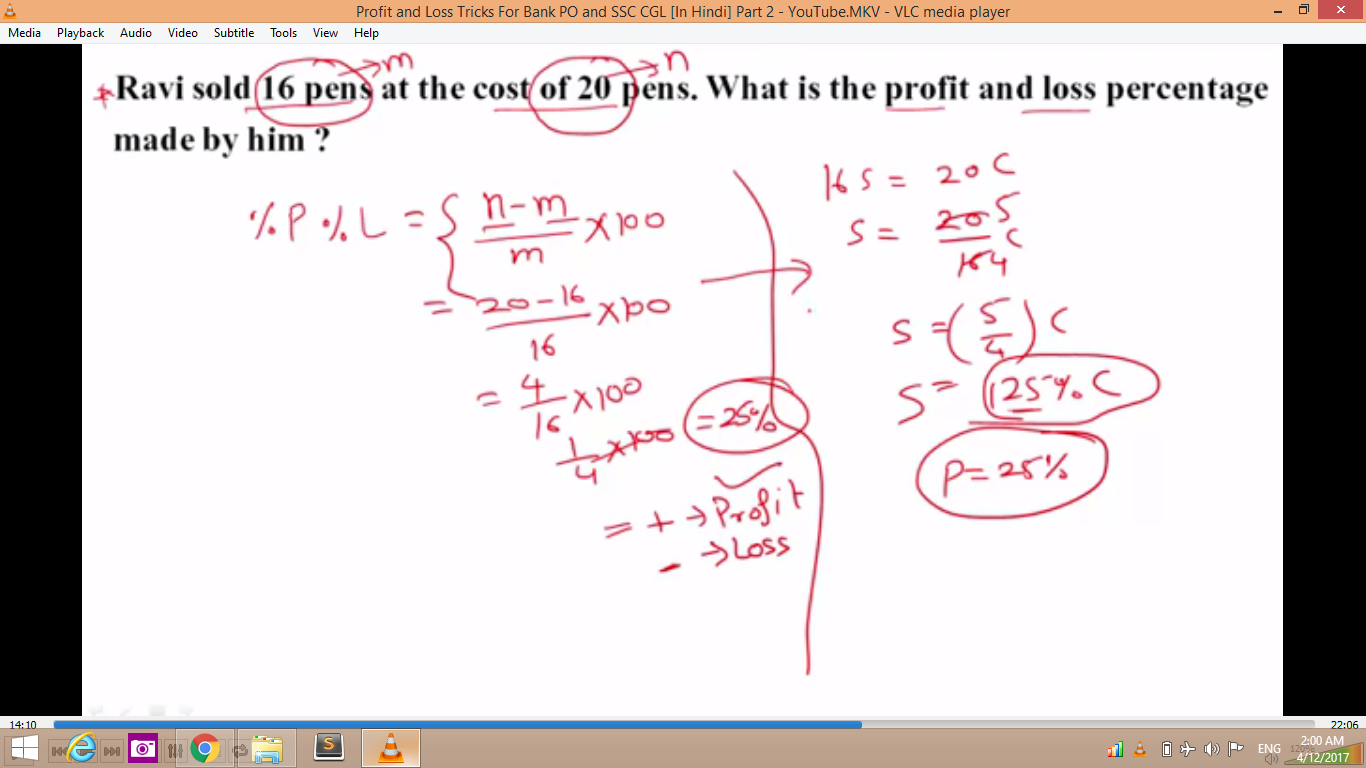 Profit and Loss Tricks For Bank PO and SSC CGL [In Hindi] Part 2 - YouTube.MKV - VLC media player
Media Playback Audio Video Subtitle Tools View Help
m n
Ravi sold 16 pens at the cost of 20 pens. What is the profit and loss percentage
made by him ?
% P % L = { n-m / m × 100
= 20-16 / 16 × 100
= 4/16 × 100
1/4 × 100 = 25%
= + → Profit
- → Loss
16 S = 20 C
S = 20 5 / 16 4 C
S = (5/4) C
S = 125% C
P = 25%
14:10 22:06
S ENG 120% 2:00 AM
4/12/2017